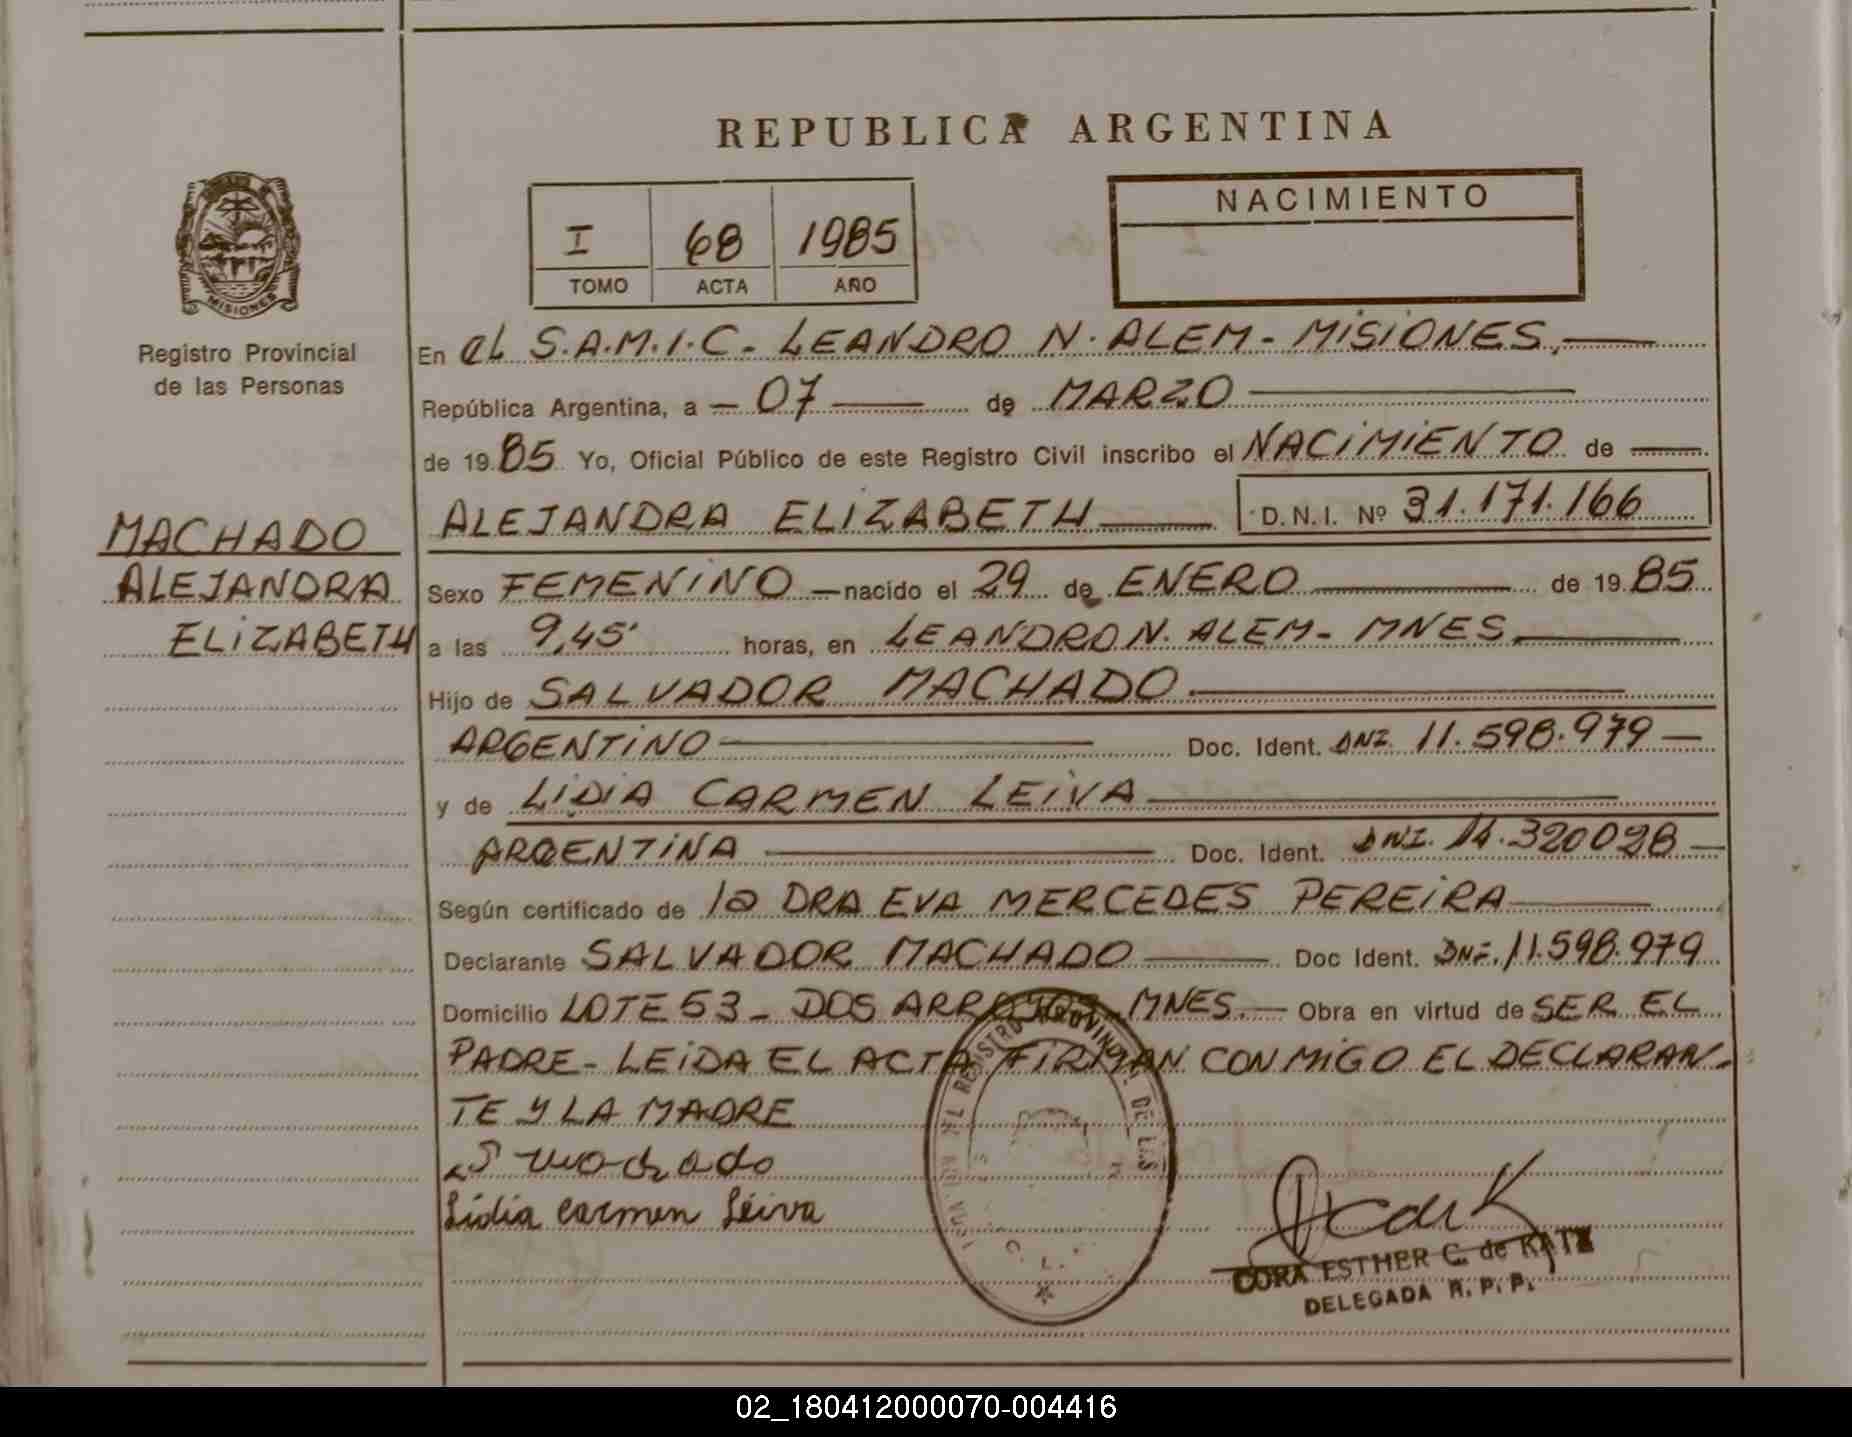 REPUBLICA ARGENTINA
MISIONES
Registro Provincial
de las Personas
I 68 1985
TOMO ACTA AÑO
NACIMIENTO
En el S.A.M.I.C. LEANDRO N. ALEM - MISIONES.
República Argentina, a - 07 de MARZO
de 19 85 Yo, Oficial Público de este Registro Civil inscribo el NACIMIENTO de
MACHADO
ALEJANDRA
ELIZABETH
ALEJANDRA ELIZABETH D.N.I. Nº 31.171.166
Sexo FEMENINO - nacido el 29 de ENERO de 19 85
a las 9,45' horas, en LEANDRO N. ALEM - MNES
Hijo de SALVADOR MACHADO
ARGENTINO Doc. Ident. DNI. 11.598.979 -
y de LIDIA CARMEN LEIVA
ARGENTINA Doc. Ident. DNI. 14.320028 -
Según certificado de la DRA EVA MERCEDES PEREIRA
Declarante SALVADOR MACHADO Doc Ident. DNI. 11.598.979
Domicilio LOTE 53 - DOS ARROYOS - MNES. - Obra en virtud de SER EL
PADRE - LEIDA EL ACTA FIRMAN CONMIGO EL DECLARAN-
TE Y LA MADRE
S machado
Lidia Carmen Leiva
REGISTRO PROVINCIAL DE LAS
CORA ESTHER C. de KATZ
DELEGADA R. P. P.
02_180412000070-004416